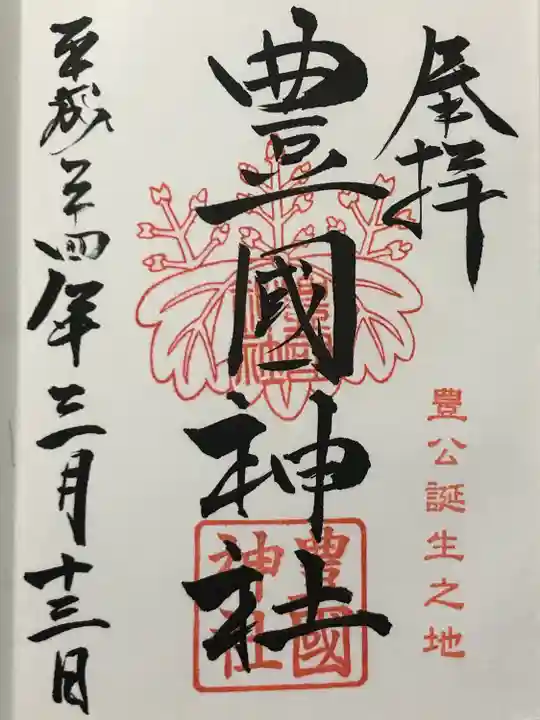 奉拝
豊公誕生之地
豊國神社
豊國神社
平成二十四年三月十三日